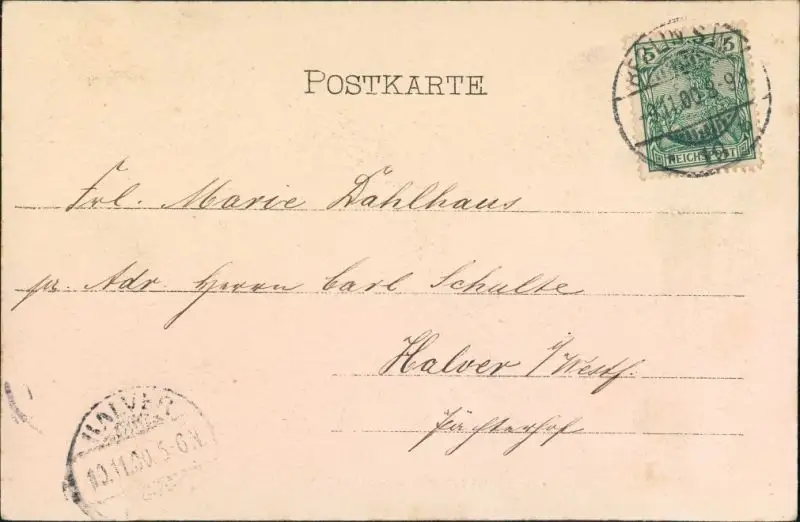 POSTKARTE
5 5
REICHSPOST
BERLIN S.W.
9.11.00.8-9N
Frl. Marie Dahlhaus
pr. Adr. Herrn Carl Schulte
Halver i/Westf.
Pächterhof
HALVER
10.11.00.5-6N